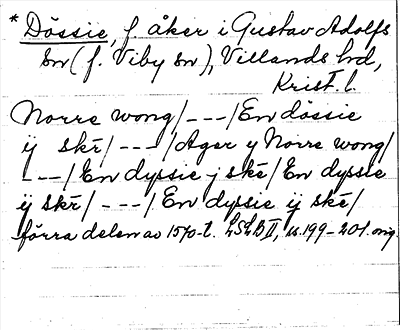 * Dössie, f. åker i Gustav Adolfs
sn (f. Viby sn), Villands hd,
Krist. l.
Norre wong/---/En dössie
ij skr̄/---/Ager y Norre wong/
---/En dyssie j skē/En dyssie
ij skr̄/---/En dyssie ij skē/
förra delen av 1570-t. LSLB II, s. 199-201. orig.